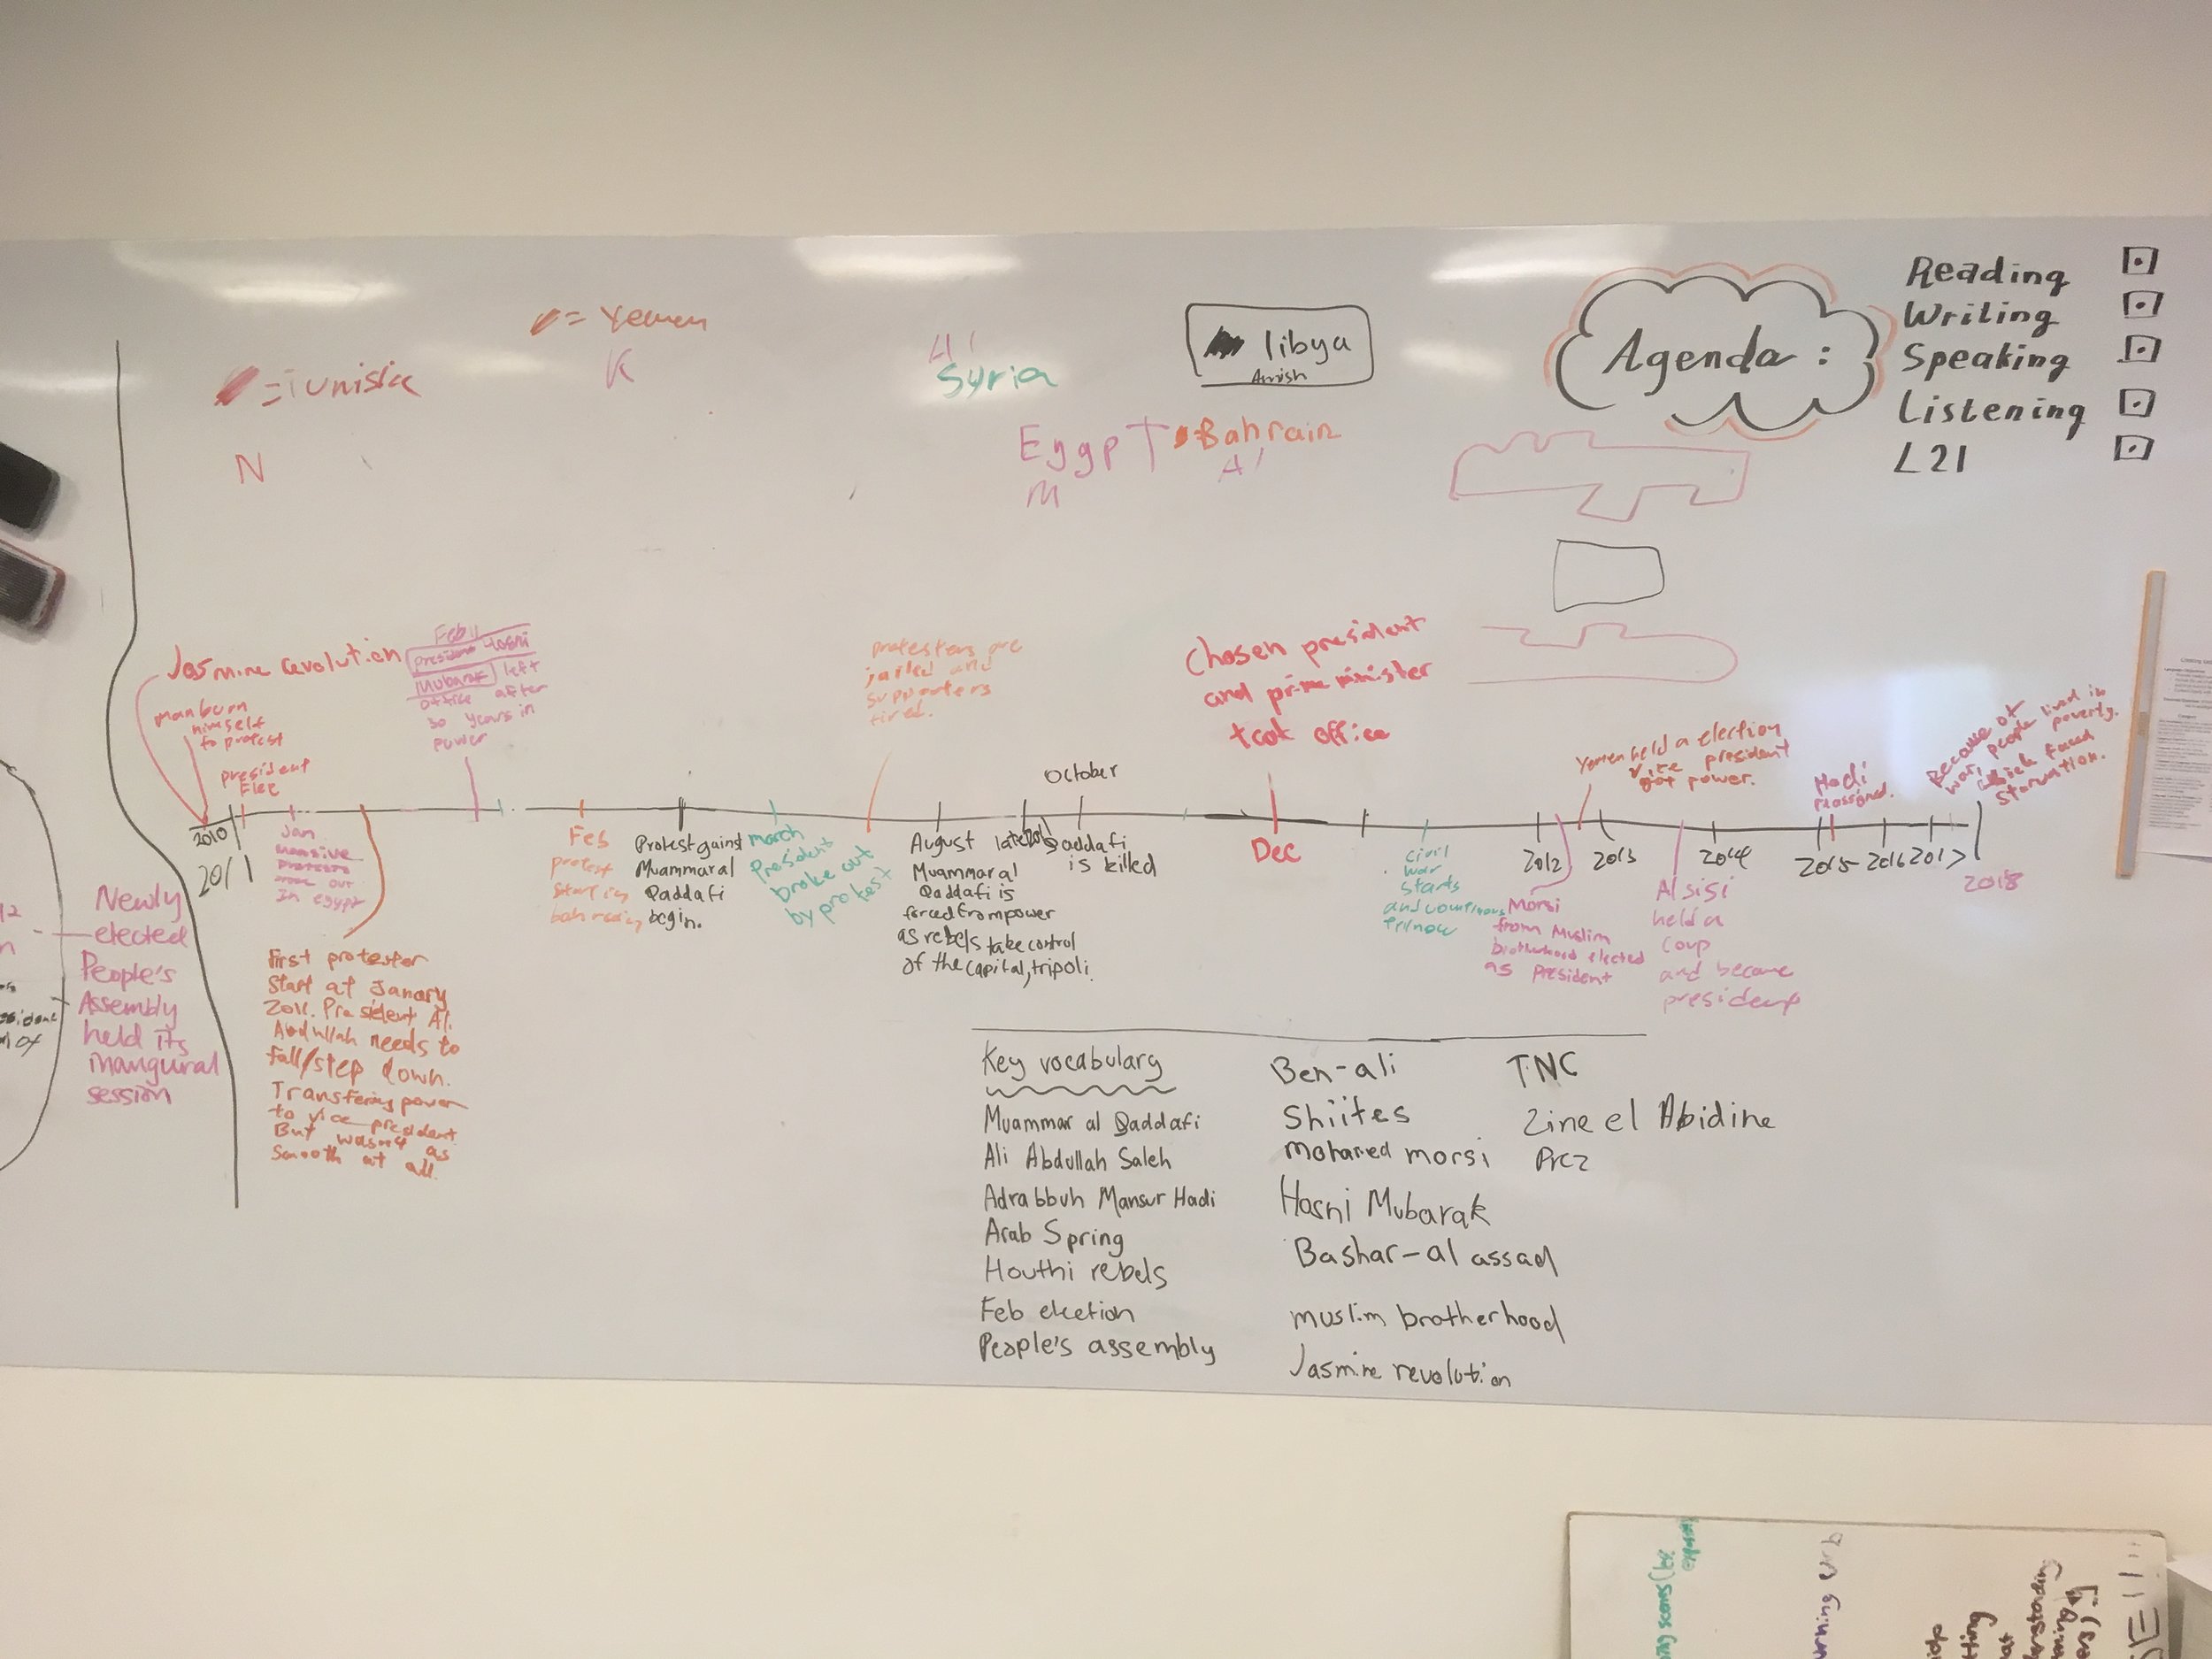 = Yemen
K
=Tunisia
N
Al
Syria
libya
Amish
EgypT
M
=Bahrain
Al
Agenda :
Reading
Writing
Speaking
Listening
L21
Jasmine revolution
man burn
himself
to protest
president
Flee
Feb 11
president Hosni
Mubarak left
office after
30 years in
power
protesters are
jailed and
supporters
fired.
Chosen president
and prime minister
took office
October
Yemen held a election
vice president
got power.
Hadi
Because of
war, people lived in
poverty.
which faced
starvation.
2010
2011
Jan
massive
protests
broke out
In egypt
Feb
protest
start in
bahrain
Protest gainst
Muammar al
Qaddafi
begin.
march
President
broke out
by protest
August
Muammar al
Qaddafi is
forced from power
as rebels take control
of the capital, tripoli.
late 2011
Qaddafi
is killed
Dec
civil
war
starts
and continues
2012
2013
2014
2015
2016
2017
2018
Morsi
from Muslim
brotherhood elected
as President
Al sisi
held a
coup
and became
president
Newly
elected
People's
Assembly
held its
inangural
session
First protester
start at Janary
2011. President Al.
Abdullah needs to
fall/step down.
Transfering power
to vice president
But wasn't as
smooth at all.
Key vocabulary
Muammar al Qaddafi
Ali Abdullah Saleh
Adrabbuh Mansur Hadi
Arab Spring
Houthi rebels
Feb election
People's assembly
Ben-ali
Shiites
Mohamed morsi
Hosni Mubarak
Bashar-al assad
muslim brotherhood
Jasmine revolution
TNC
Zine el Abidine
Prez